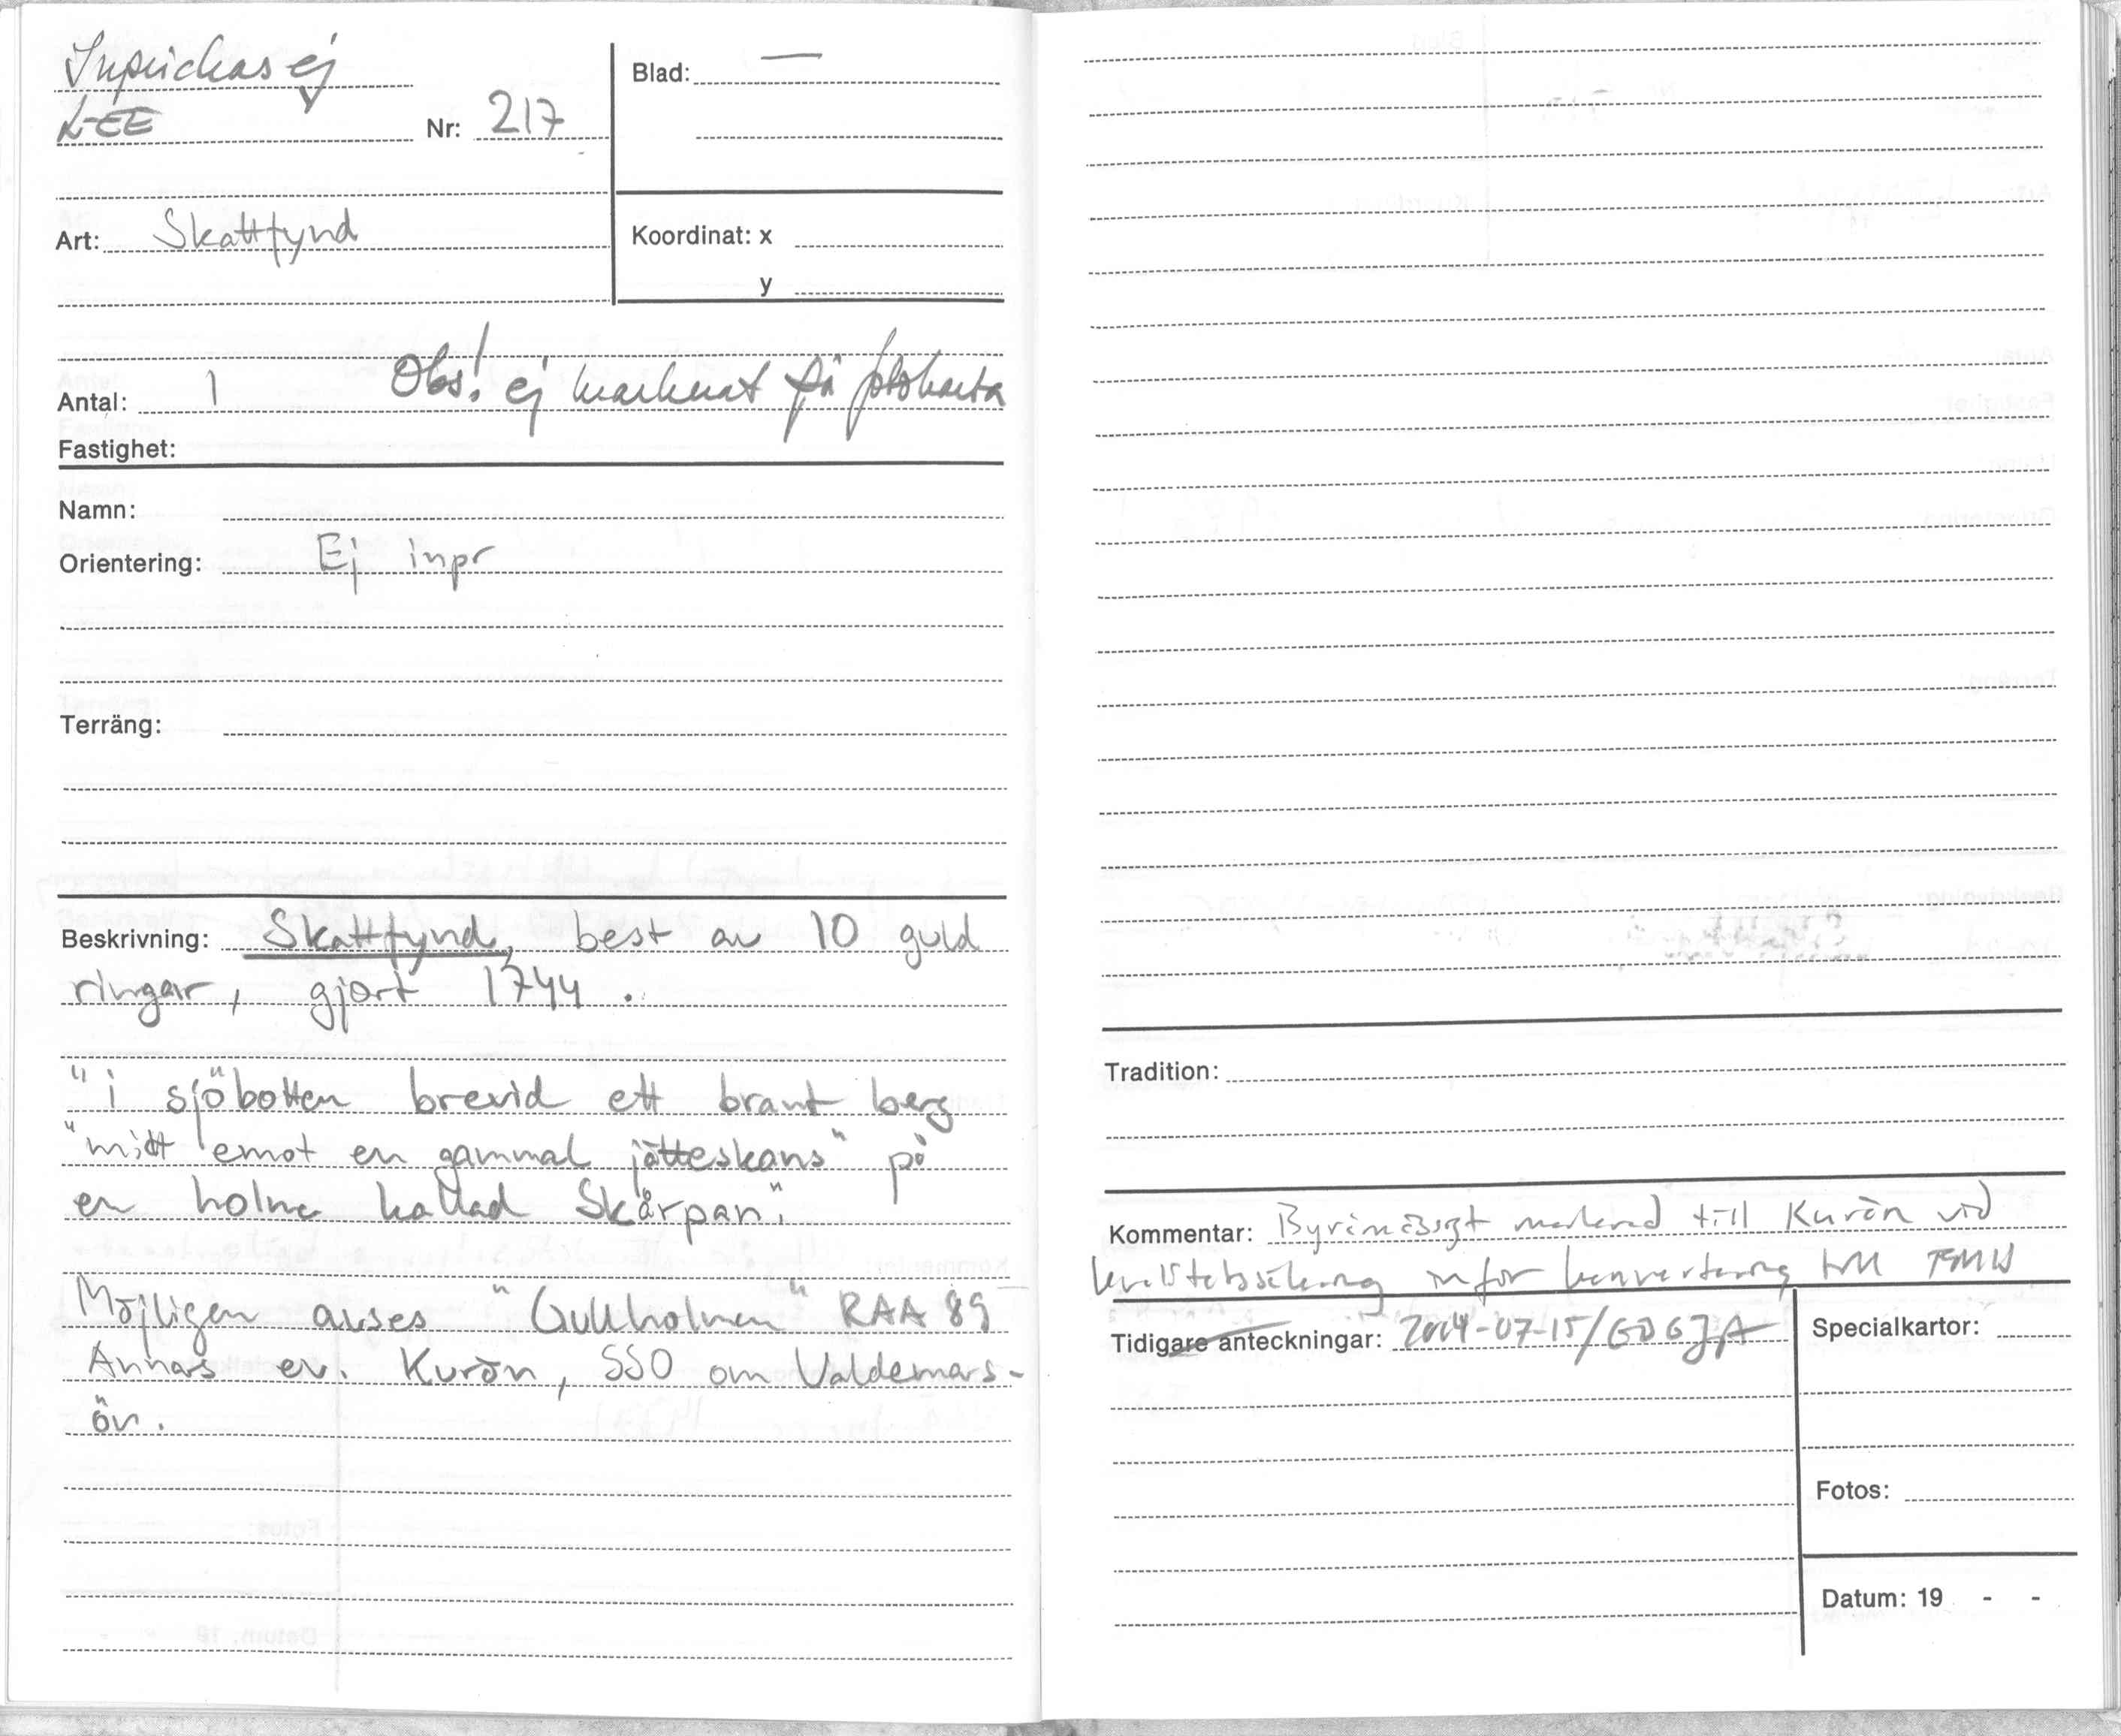 Inprickas ej
LEE
Nr: 217
Blad: —
Art: Skattfynd
Koordinat: x
y
Antal: 1 Obs! ej markerat på fotokarta
Fastighet:
Namn:
Orientering: Ej inpr
Terräng:
Beskrivning: Skattfynd, best av 10 guld
ringar, gjort 1744.
"i sjöbotten brevid ett brant berg
"mitt emot en gammal jätteskans" på
en holme kallad Skårpan".
Möjligen avses "Gullholmen" RAA 89
Annars ev. Kurön, SSO om Valdemars-
ön.
Tradition:
Kommentar: Byråmässigt markerad till Kurön vid
kvalitetssäkring inför konvertering till FMIS
Tidigare anteckningar: 2004-07-15/
Specialkartor:
Fotos:
Datum: 19 - -